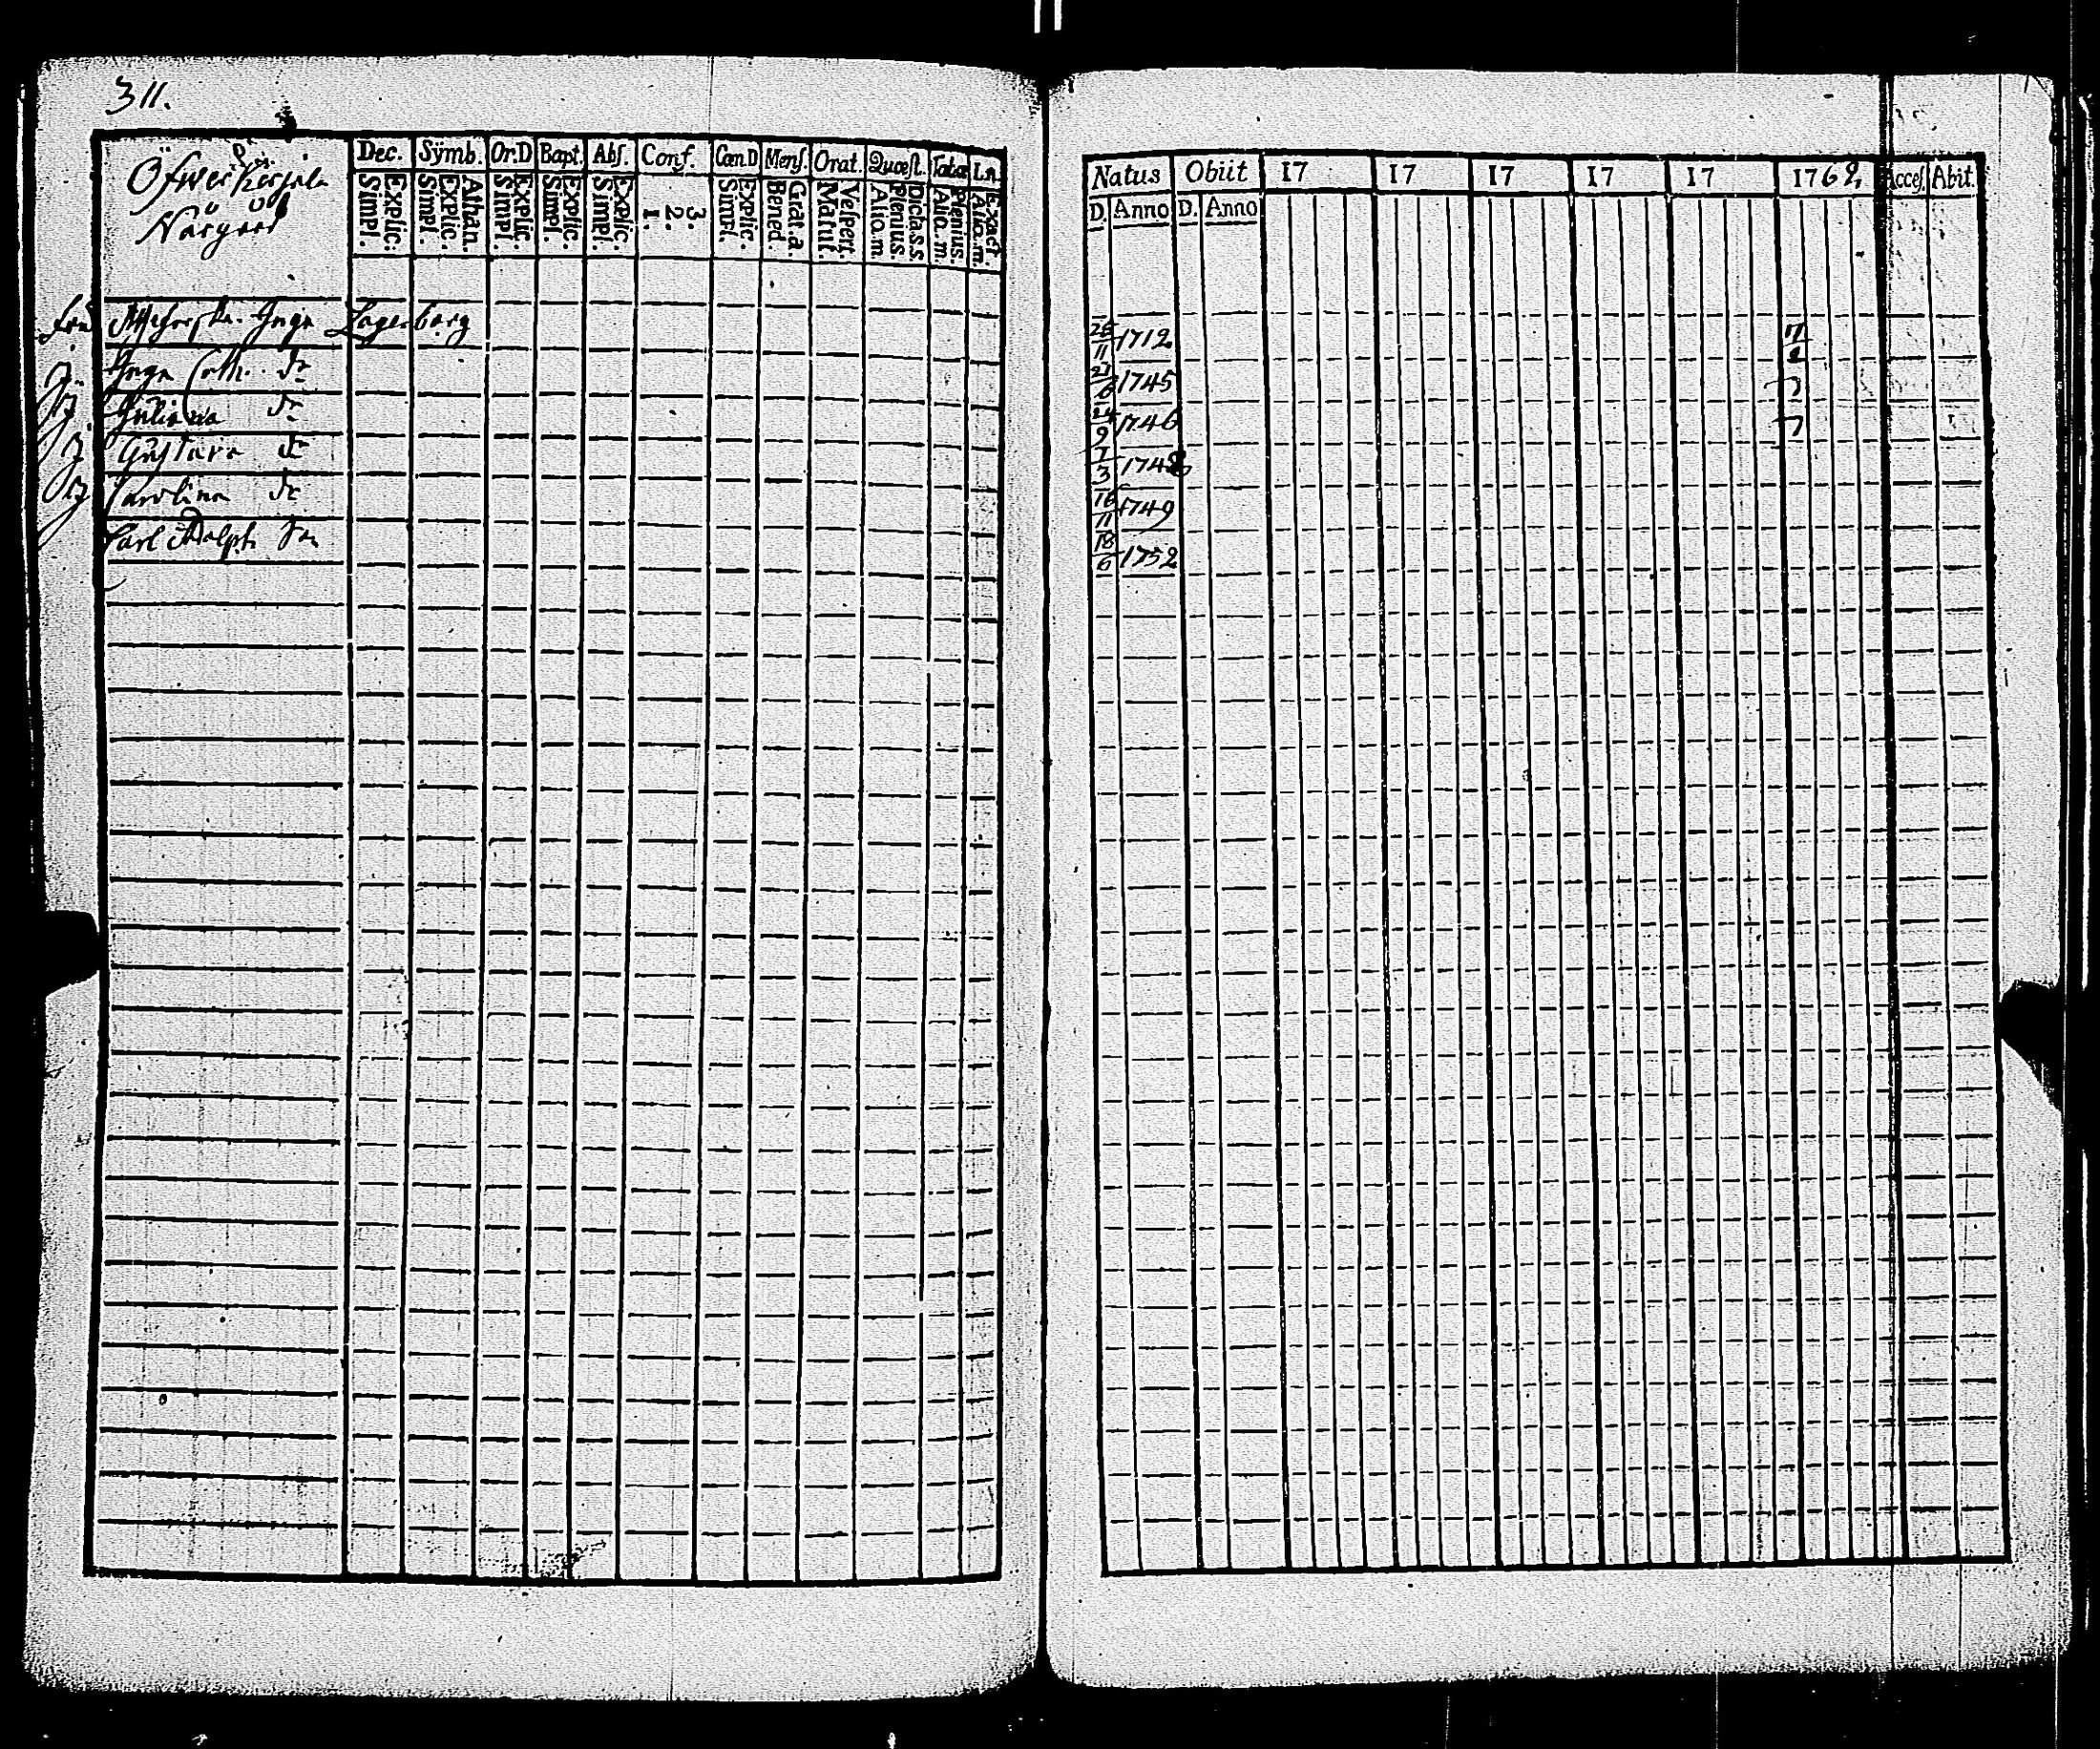 311.
Öfwerkerjala
Nârgård
Dec. Sÿmb. Or.D Bapt. Abſ. Conf. Cœn.D Menſ. Orat. Quœſt. Tabœ
Explic. Simpl. Athan. Explic. Simpl. Explic. Simpl. Explic. Simpl. Explic. Simpl. 3. 2. 1. Explic. Simpl. Grat.a. Bened. Veſpert. Matut. Dicta.s.s. Plenius. Alio.m Plenius. Alio.m. Exact. Alio.m.
Natus Obiit 17 17 17 17 17 1762, Acceſ. Abit.
D. Anno D. Anno
Fru Inga Lagerborg 26/11 1712 7
Inga Cath. Dr 21/6 1745 7
Juliana Dr 24/9 1746 7
Gustava Dr 7/3 1748
Carolina Dr 16/11 1749
Carl Adolph Son 18/6 1752